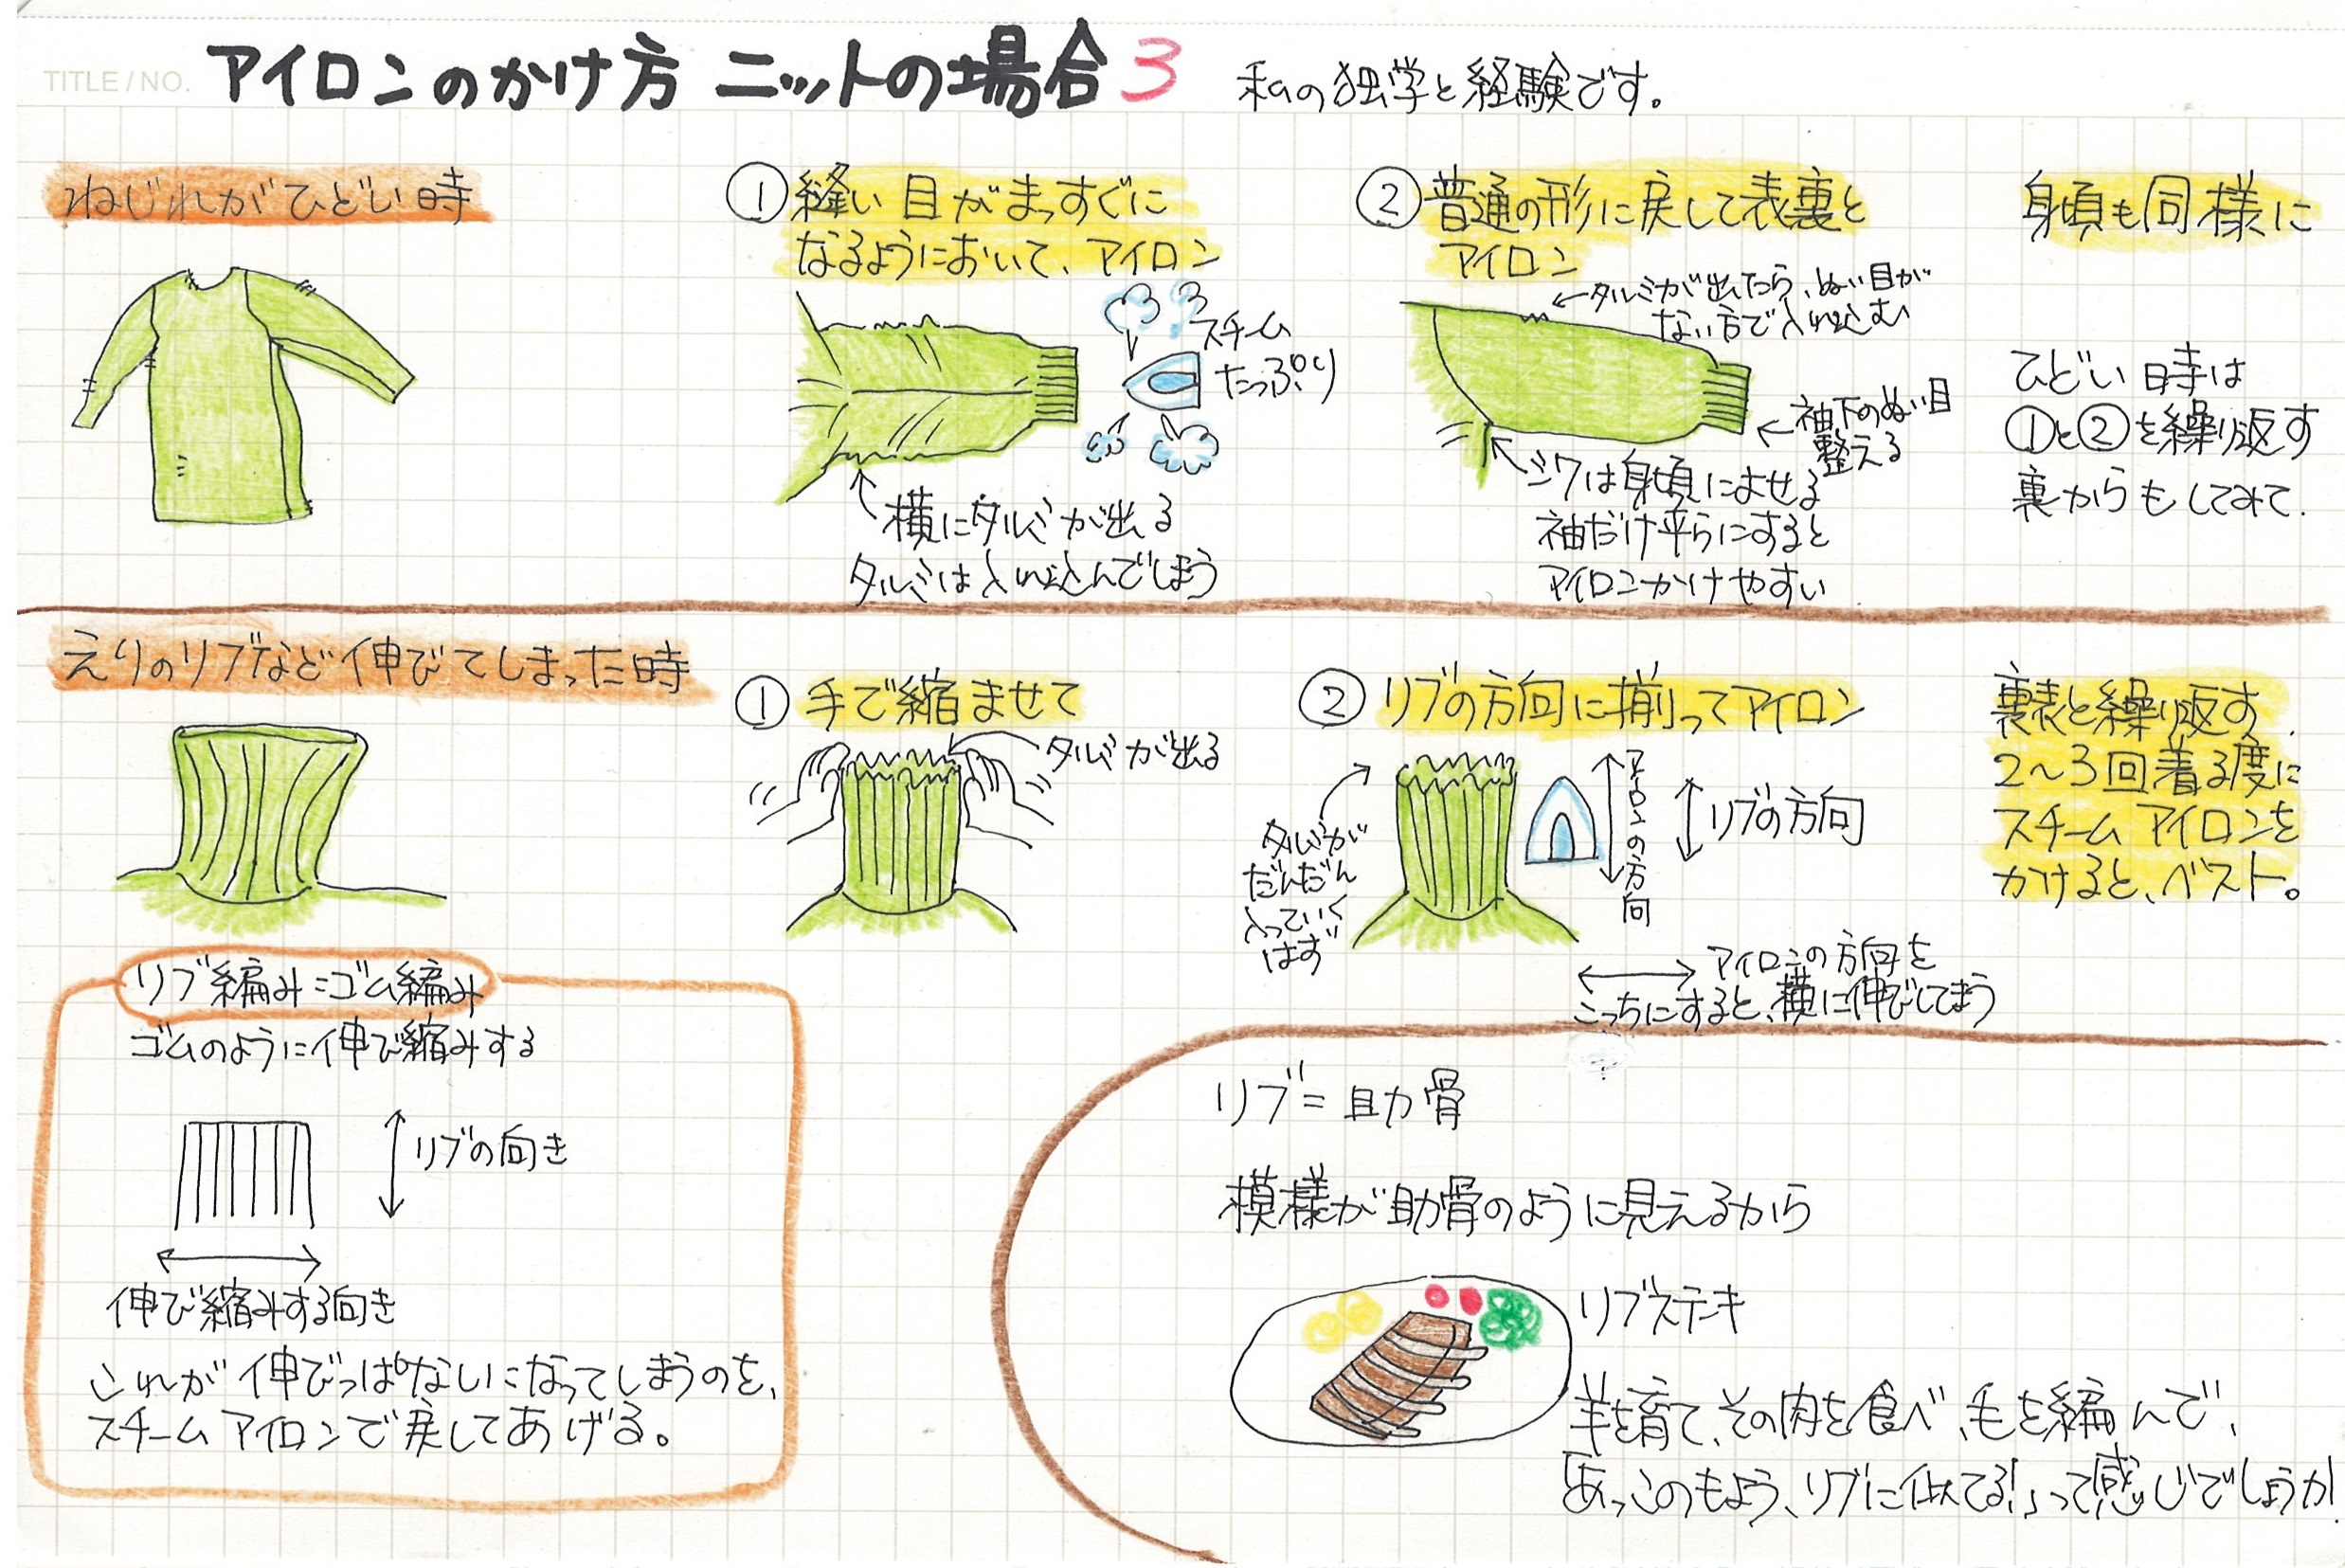 TITLE/NO. アイロンのかけ方 ニットの場合3 私の独学と経験です。
ねじれがひどい時
①縫い目がまっすぐに
なるようにおいて、アイロン
スチーム
たっぷり
横にタルミが出る
タルミは入れ込んでしまう
②普通の形に戻して表裏と
アイロン
←タルミが出たら、ぬい目が
ない方で入れ込む
←袖下のぬい目
整える
シワは身頃によせる
袖だけ平らにすると
アイロンかけやすい
身頃も同様に
ひどい時は
①と②を繰り返す
裏からもしてみて.
えりのリブなど伸びてしまった時
①手で縮ませて
タルミが出る
②リブの方向に揃ってアイロン
タルミが
だんだん
入っていく
はず
アイロンの方向
リブの方向
アイロンの方向を
こっちにすると、横に伸びてしまう
裏表と繰り返す.
2〜3回着る度に
スチームアイロンを
かけると、ベスト。
リブ編み=ゴム編み
ゴムのように伸び縮みする
リブの向き
伸び縮みする向き
これが伸びっぱなしになってしまうのを、
スチームアイロンで戻してあげる。
リブ=肋骨
模様が肋骨のように見えるから
リブステキ
羊を育て、その肉を食べ、毛を編んで、
「あっこのもよう、リブに似てる!」って感じでしょうか!